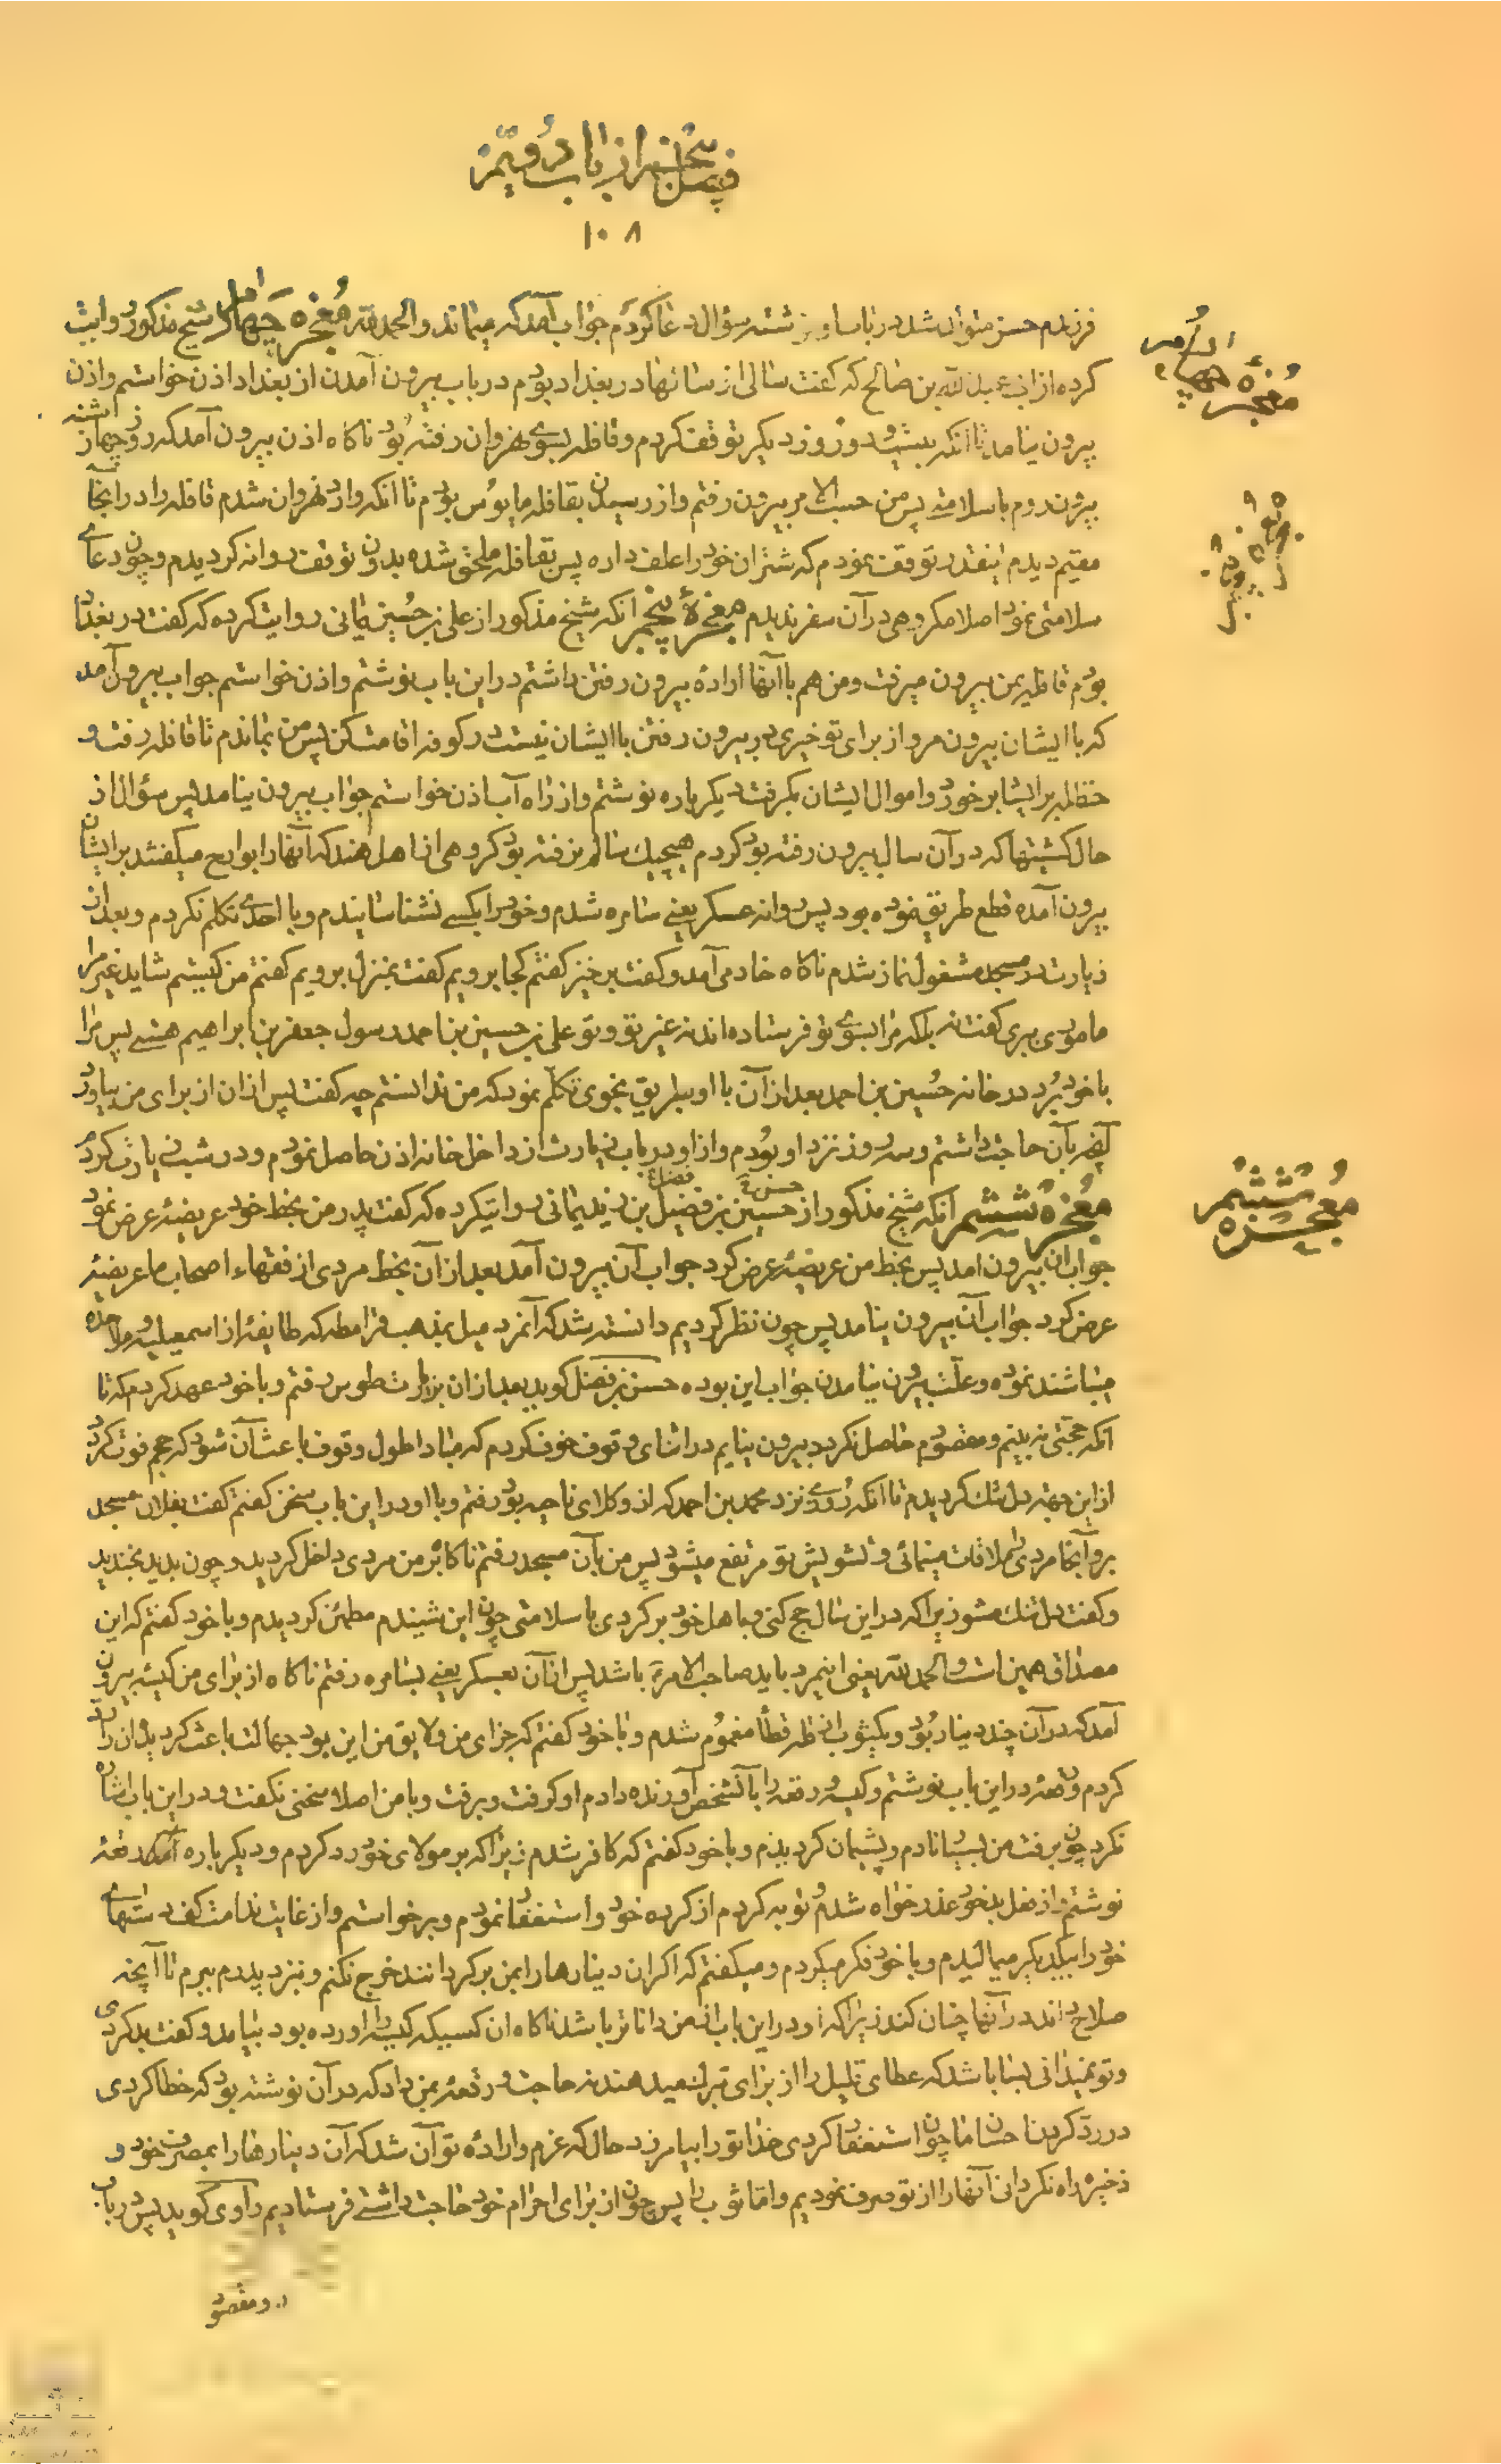 فیض پنجم از باب دویم
۱۰۸
فرزندم حسن متولد شد در باب او نوشته سؤال دعا کردم جواب آمد که میماند والحمدلله معجزه چهارم شیخ مذکور روایت
کرده از ابی عبدالله بن صالح که گفت سالی از سالها در بغداد بودم در باب بیرون آمدن از بغداد اذن خواستم و اذن
بیرون نیامد تا آنکه بیست و دو روز دیگر توقف کردم و قافله بسوی نهروان رفته بود ناگاه اذن بیرون آمد که روز چهارشنبه
بیرون روم با سلامت پس من حسب الامر بیرون رفتم و از رسیدن بقافله مایوس بودم تا آنکه وارد نهروان شدم قافله را در آنجا
مقیم دیدم اینقدر توقف نمودم که شتران خود را علف داده پس بقافله ملحق شده بدون توقف روانه کردیدم و چون دعای
سلامتی نمود اصلا مکروهی در آن سفر ندیدم معجزهٔ پنجم آنکه شیخ مذکور از علی بن حسین یمانی روایت کرده که گفت در بغداد
بودم قافله یمن بیرون میرفت و من هم با آنها ارادهٔ بیرون رفتن داشتم در این باب نوشتم و اذن خواستم جواب بیرون آمد
که با ایشان بیرون مرو از برای تو خیری در بیرون رفتن با ایشان نیست در کوفه اقامت کن پس من بماندم تا قافله رفت و
حنظله بر ایشان برخورد و اموال ایشان بگرفت دیگر باره نوشتم و از راه آب اذن خواستم جواب بیرون نیامد پس سؤال از
حال کشتیها که در آن سال بیرون رفته بود کردم هیچیک سالم نرفته بود گروهی از اهل هند که آنها را بوارح میگفتند بر ایشان
بیرون آمده قطع طریق نموده بود پس روانه عسکر یعنی سامره شدم و خود را بکسی نشناسانیدم و با احدی تکلم نکردم و بعد از
زیارت در مسجد مشغول نماز شدم ناگاه خادمی آمد و گفت برخیز گفتم کجا برویم گفت بمنزل برویم گفتم من کیستم شاید غیر مرا
مامور ببری گفت نه بلکه مرا بسوی تو فرستاده‌اند نه غیر تو و تو علی بن حسین بن احمد رسول جعفر بن ابراهیم هستی پس مرا
با خود برد در خانه حسین بن احمد بعد از آن با او بطریق نجوی تکلم نمود که من ندانستم چه گفت پس از آن از برای من بیاورد
آنچه بآن حاجت داشتم و سه روز نزد او بودم و از او در باب زیارت از داخل خانه اذن حاصل نمودم و در شب زیارت کردم
معجزه ششم آنکه شیخ مذکور از حسین بن فضیل بن زید یمانی روایت کرده که گفت پدر من بخط خود عریضهٔ عرض نمود
جواب آن بیرون آمد پس بخط من عریضهٔ عرض کرد جواب آن بیرون آمد بعد از آن بخط مردی از فقهاء اصحاب ما عریضهٔ
عرض کرد جواب آن بیرون نیامد پس چون نظر کردیم دانسته شد که آنمرد میل بمذهب قرامطه که طایفهٔ از اسمعیلیه و ملاحده
میباشند نموده و علت بیرون نیامدن جواب این بوده حسن بن فضل گوید بعد از آن بزیارت طوس رفتم و با خود عهد کردم که تا
آنکه حجتی نه بینم و مقصودم حاصل نگردد بیرون نیایم در اثنای وقوف خوف کردم که مبادا طول وقوف باعث آن شود که حجم فوت گردد
از این جهت دل تنک گردیدم تا آنکه روزی نزد محمد بن احمد که از وکلای ناحیه بود رفتم و با او در این باب سخن گفتم گفت بفلان مسجد
برو آنجا مردی را ملاقات مینمائی و تشویش تو مرتفع میشود پس من بآن مسجد رفتم ناگاه بر من مردی داخل گردید و چون بدید بخندید
و گفت دل تنک مشو زیرا که در این سال حج کنی و باهل خود برگردی با سلامتی چون این شنیدم مطمئن گردیدم و با خود گفتم که این
مصداق همین است والحمدلله یعنی اینمرد باید صاحب الامر باشد پس از آن بعسکر یعنی بسامره رفتم ناگاه از برای من کیسه بیرون
آمد که در آن چند دینار بود و یکثوب از نظر قطعا مغموم شدم و با خود گفتم که جزای من و لایق من این بود جهالت باعث گردید آن را رد
کردم و رقعهٔ در این باب نوشتم و کیسه و رقعه را بآنشخص آورنده دادم او گرفت و برفت و با من اصلا سخنی نگفت و در این باب اشاره
نکرد چون برفت من بسیار نادم و پشیمان گردیدم و با خود گفتم که کافر شدم زیرا که بر مولای خود رد کردم و دیگر باره رقعهٔ
نوشتم و از فعل بد خود عذر خواه شدم و توبه کردم از کرده خود و استغفار نمودم و برخواستم و از غایت ندامت کف دستهای
خود را بیکدیگر میمالیدم و با خود فکر میکردم و میگفتم که اگر آن دینارها را بمن برگردانند خرج نکنم و نزد پدرم ببرم تا آنچه
صلاح داند در آنها چنان کند زیرا که او در این باب از من دانا تر باشد ناگاه آن کسیکه کیسه را آورده بود بیامد و گفت بد کردی
و تو نمیدانی بسا باشد که عطای قلیل را از برای تبرک میدهند نه حاجت و رقعه بمن داد که در آن نوشته بود که خطا کردی
در رد کردن احسان ما چون استغفار کردی خدا تو را بیامرزد حال که عزم و ارادهٔ تو آن شد که آن دینارها را بمصرف خود و
ذخیره راه نگردانی آنها را از تو صرف نمودیم و اما ثوب را پس چون از برای احرام خود حاجت داشتی فرستادیم راوی گوید پس در باب
دو مقصود
معجزه چهارم
معجزه پنجم
معجزه ششم